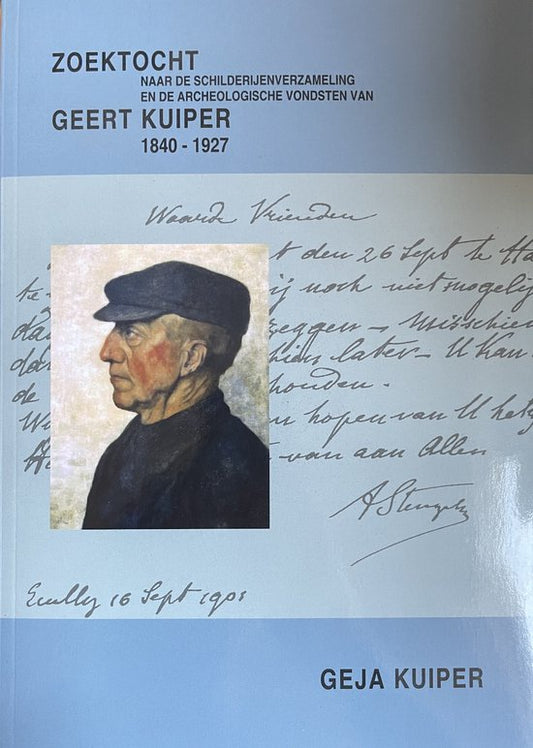 ZOEKTOCHT
NAAR DE SCHILDERIJENVERZAMELING
EN DE ARCHEOLOGISCHE VONDSTEN VAN
GEERT KUIPER
1840 - 1927
Waarde Vrienden
t den 26 Sept te
te ij noch niet mogelij
zeggen – Misschien
later – U kan
de houden.
n hopen van U het
van aan Allen
16 Sept 1901
GEJA KUIPER